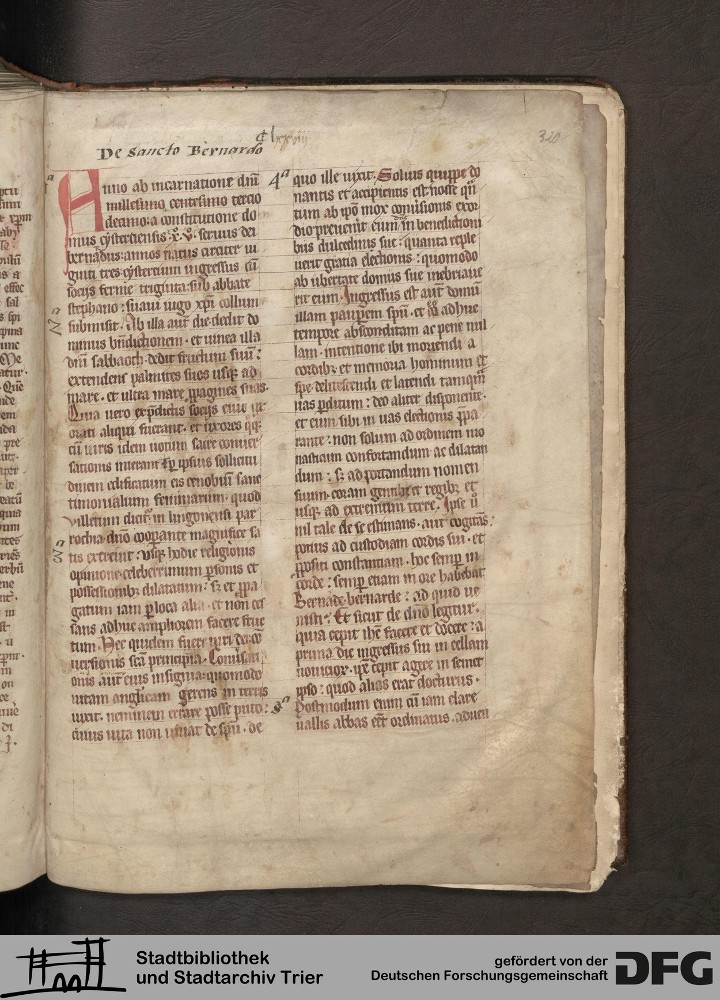 De Sancto Bernardo
320
Anno ab incarnatione dni
millesimo centesimo tercio
decimo: a constitutione do
mus cysterciensis xv seruus dei
bernardus: annos natus circiter ui
ginti tres cystercium ingressus cu
socijs ferme triginta: sub abbate
stephano: suaui iugo xpi collum
submisit. Ab illa aut die dedit do
minus bndictionem. et uinea illa
dni sabbaoth dedit fructum suu:
extendens palmites suos usq ad
mare. et ultra mare ppagines suas.
Quia uero expdictis socijs eius ux
orati aliqui fuerant. et uxores qq
cu uiris idem uotum sacre conuer
sationis inierant p ipsius sollicitu
dinem edificatum eis cenobiu sanc
timonialium feminarum. quod
villetum dicit in lingonensi par
rochia dno cooperante magnifice sa
tis excreuit: usq hodie religionis
opinione celeberrimum psonis et
possessionib dilatatum: s et ppa
gatum iam p loca alia. et non ces
sans adhuc ampliorem facere fruc
tum. Hec quidem fuere uiri dei co
uersionis sca principia. Conuersati
onis aut eius insignia: quomodo
uitam anglicam gerens in terris
uixit. neminem enarrare posse puto:
cuius uita non uiuat de spu. de
4a quo ille uixit. Solius quippe do
nantis et accipientis est nosse qn
tum ab ipo mox conuisionis exor
dio preuenit eum dns in benedictioni
bus dulcedinis sue: quanta reple
uerit gratia electionis: quomodo
ab ubertate domus sue inebriaue
rit eum. Ingressus est aut domu
illam pauperem spu. et eo adhuc
tempore absconditam ac pene nul
lam. intentione ibi moriendi a
cordib et memoria hominum et
spe delitescendi et latendi tamqm
uas pditum: deo aliter disponente.
et eum sibi in uas electionis ppa
rante: non solum ad ordinem mo
nasticum confortandum ac dilatan
dum: s ad portandum nomen
suum coram gentib et regib et
usq ad extremum terre. Ipse u
nil tale de se estimans. aut cogitas:
potius ad custodiam cordis sui. et
ppositi constantiam. hoc semp in
corde: semp etiam in ore habebat
Bernade bernarde: ad quid ue
nisti: Et sicut de dno legitur.
quia cepit ihc facere et docere: a
prima die ingressus sui in cellam
nouicior. ipe cepit agere in semet
ipso: quod alios erat docturus.
Postmodum enim cu iam clare
uallis abbas eet ordinatus. aduen
Stadtbibliothek
und Stadtarchiv Trier
gefördert von der
Deutschen Forschungsgemeinschaft
DFG